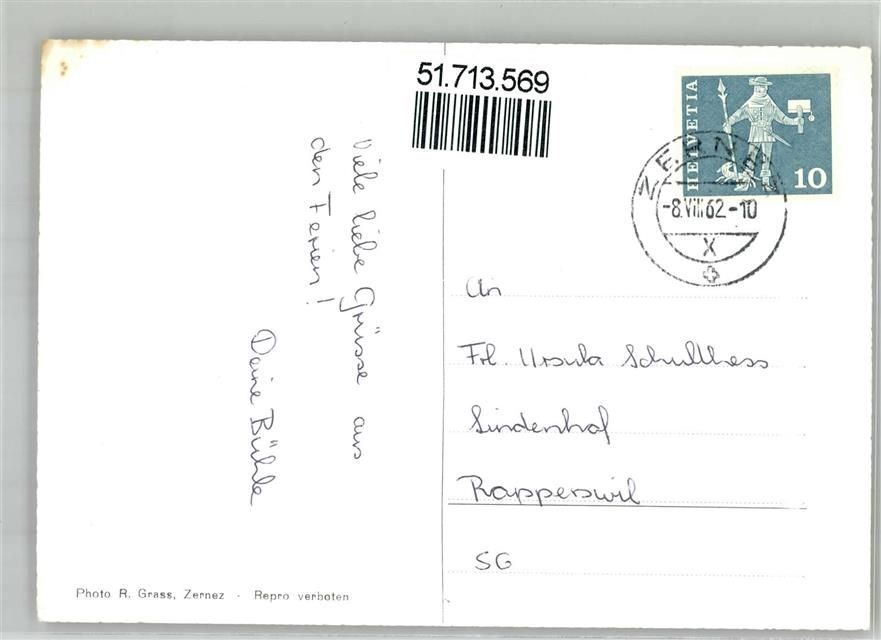 51.713.569
HELVETIA
10
ZERNEZ
-8.VIII.62-10
X
Viele liebe Grüsse aus
den Ferien!
Deine Bühle
An
Frl. Ursula Schulthess
Lindenhof
Rapperswil
SG
Photo R. Grass, Zernez - Repro verboten